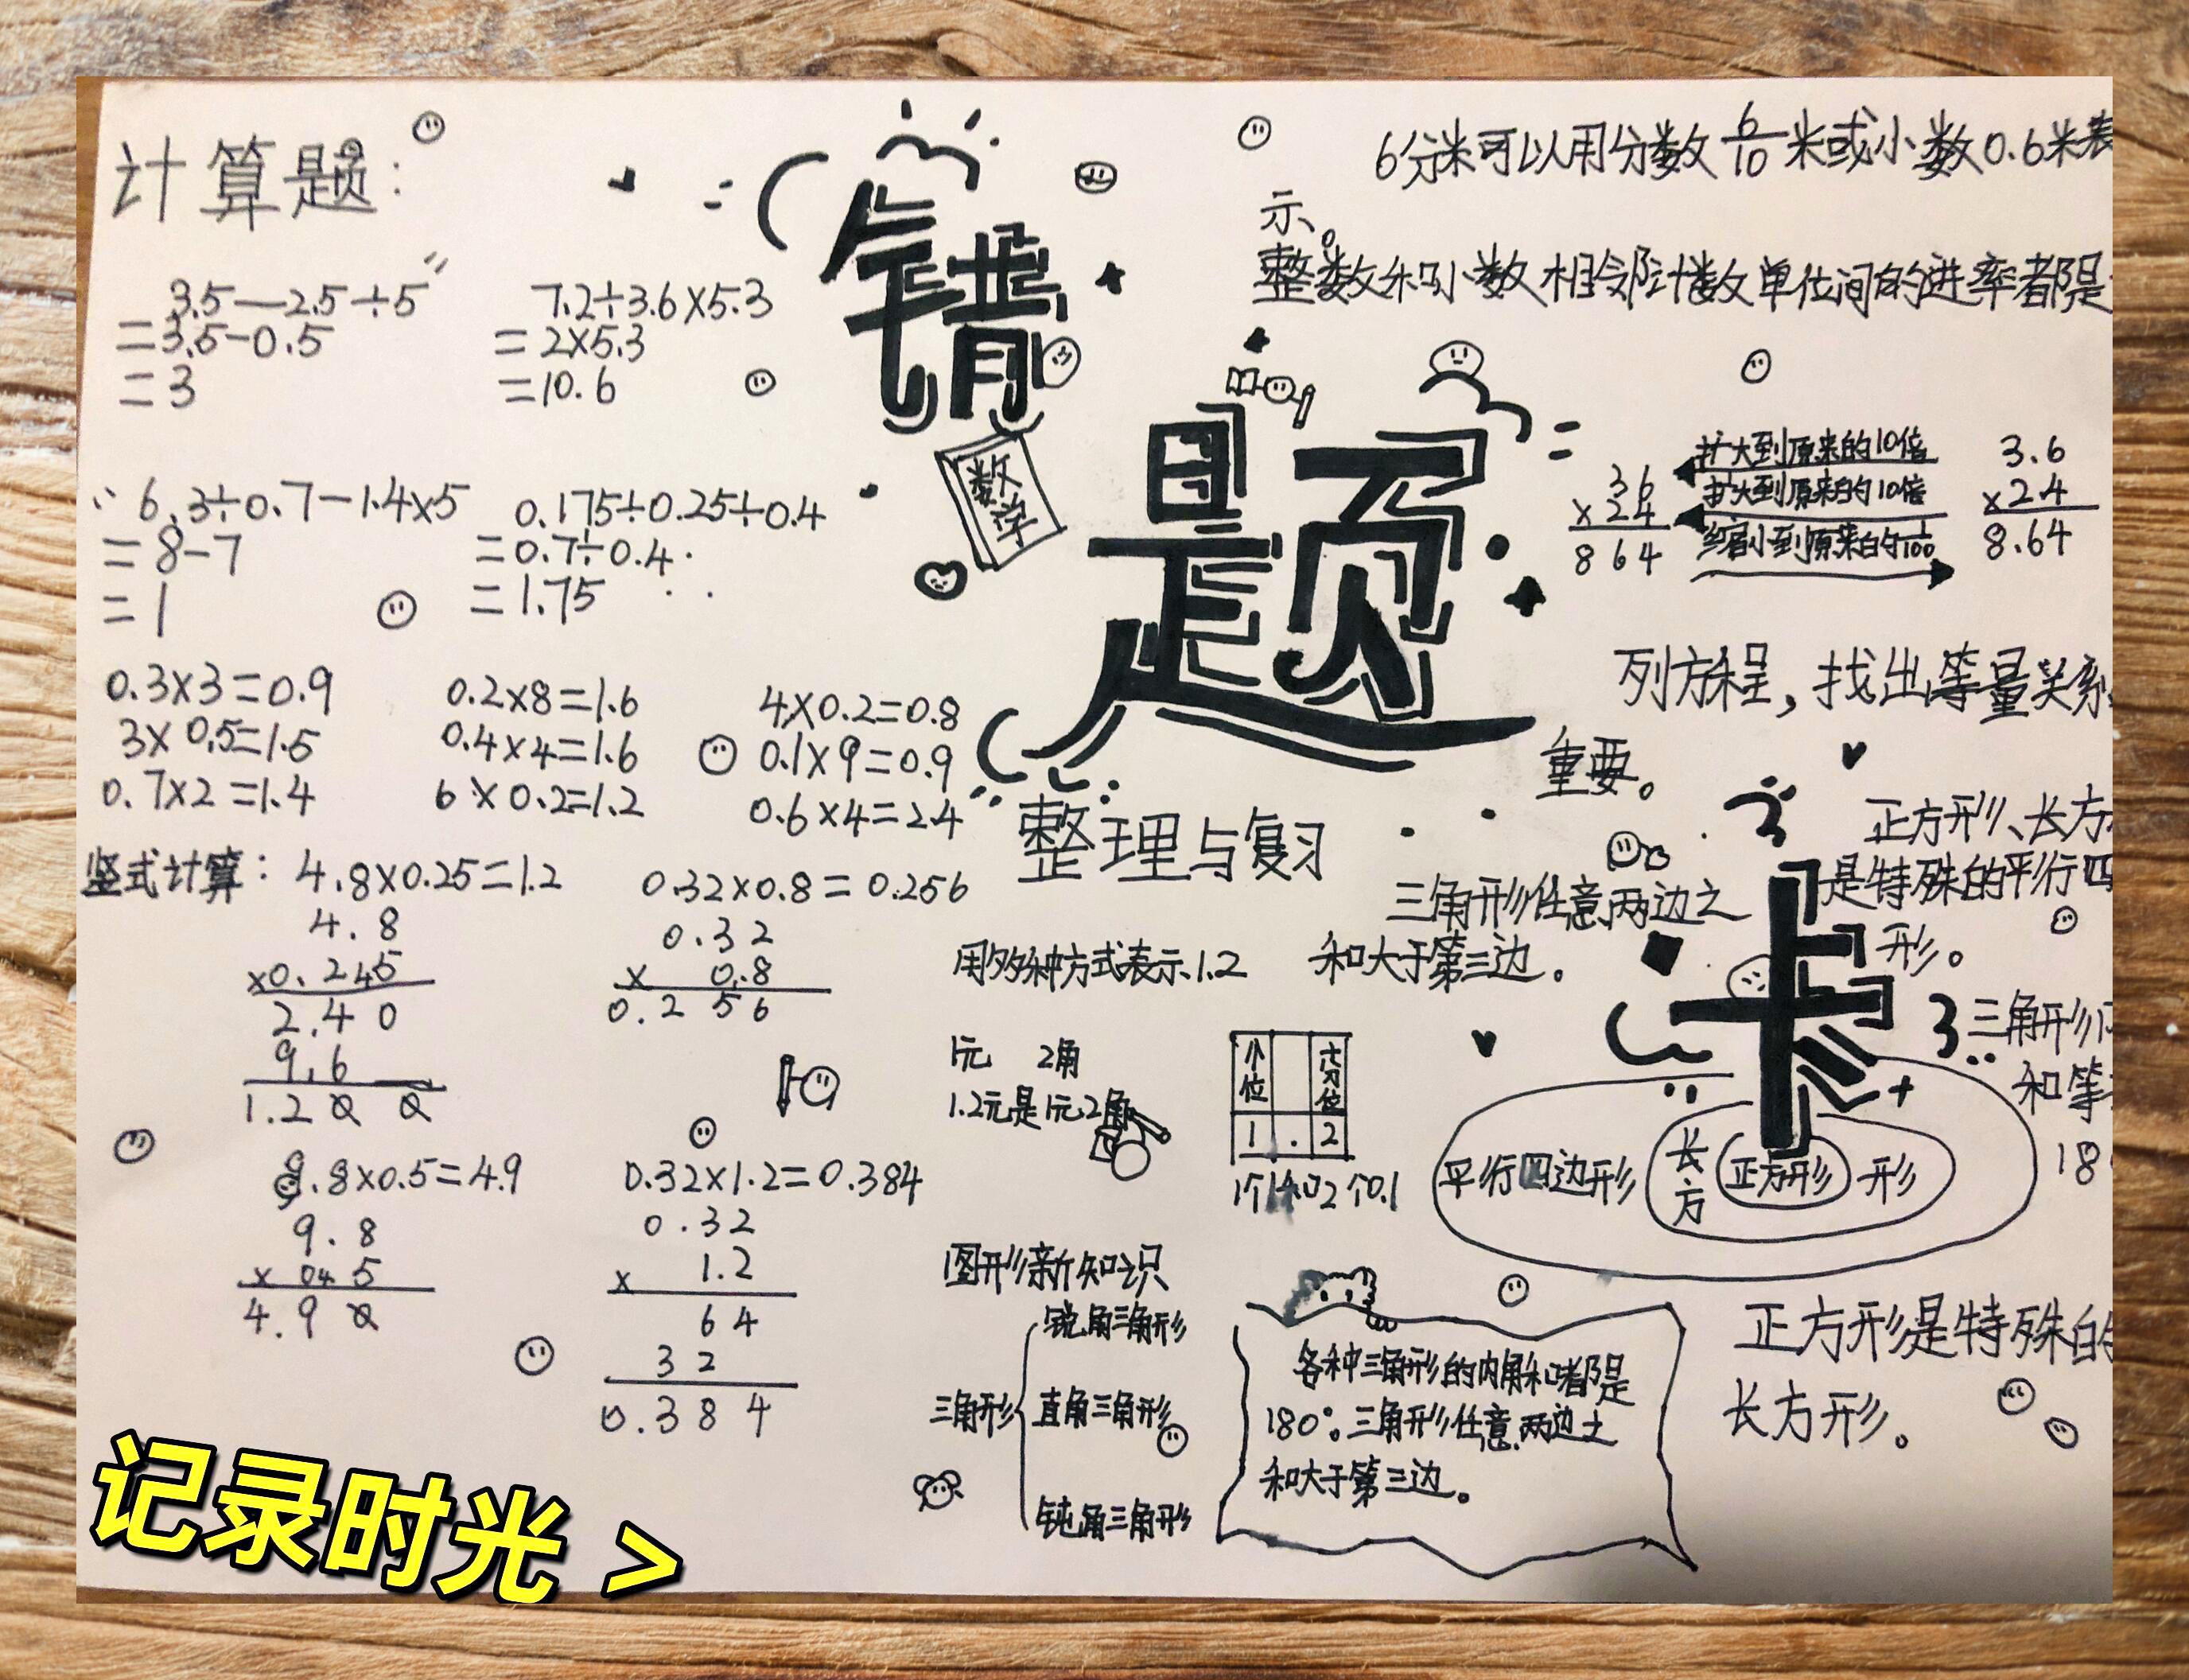 计算题:
3.5—2.5÷5
=3.5-0.5
=3
7.2÷3.6×5.3
=2×5.3
=10.6
6.3÷0.7-1.4×5
=8-7
=1
0.175÷0.25÷0.4
=0.7÷0.4
=1.75
0.3×3=0.9
0.2×8=1.6
4×0.2=0.8
3×0.5=1.5
0.4×4=1.6
0.1×9=0.9
0.7×2=1.4
6×0.2=1.2
0.6×4=2.4
竖式计算: 4.8×0.25=1.2
4.8
2.40
9.6
1.200
0.32×0.8=0.256
0.32
× 0.8
0.256
9.8×0.5=4.9
9.8
4.90
0.32×1.2=0.384
0.32
× 1.2
64
32
0.384
错
题
卡
数
学
整理与复习
6分米可以用分数6/10米或小数0.6米表
示。
整数和小数相邻计数单位间的进率都是
36
×24
864
扩大到原来的10倍
扩大到原来的10倍
缩小到原来的1/100
3.6
×2.4
8.64
列方程,找出等量关系
重要。
正方形、长方
是特殊的平行四
形。
三角形任意两边之
和大于第三边。
用多种方式表示1.2
1元 2角
1.2元是1元2角
个位
十分位
1 . 2
三角形
和等
18
平行四边形
长方
正方形
形
图形新知识
三角形
锐角三角形
直角三角形
钝角三角形
各种三角形的内角和都是
180°。三角形任意两边之
和大于第三边。
正方形是特殊的
长方形。
记录时光 >